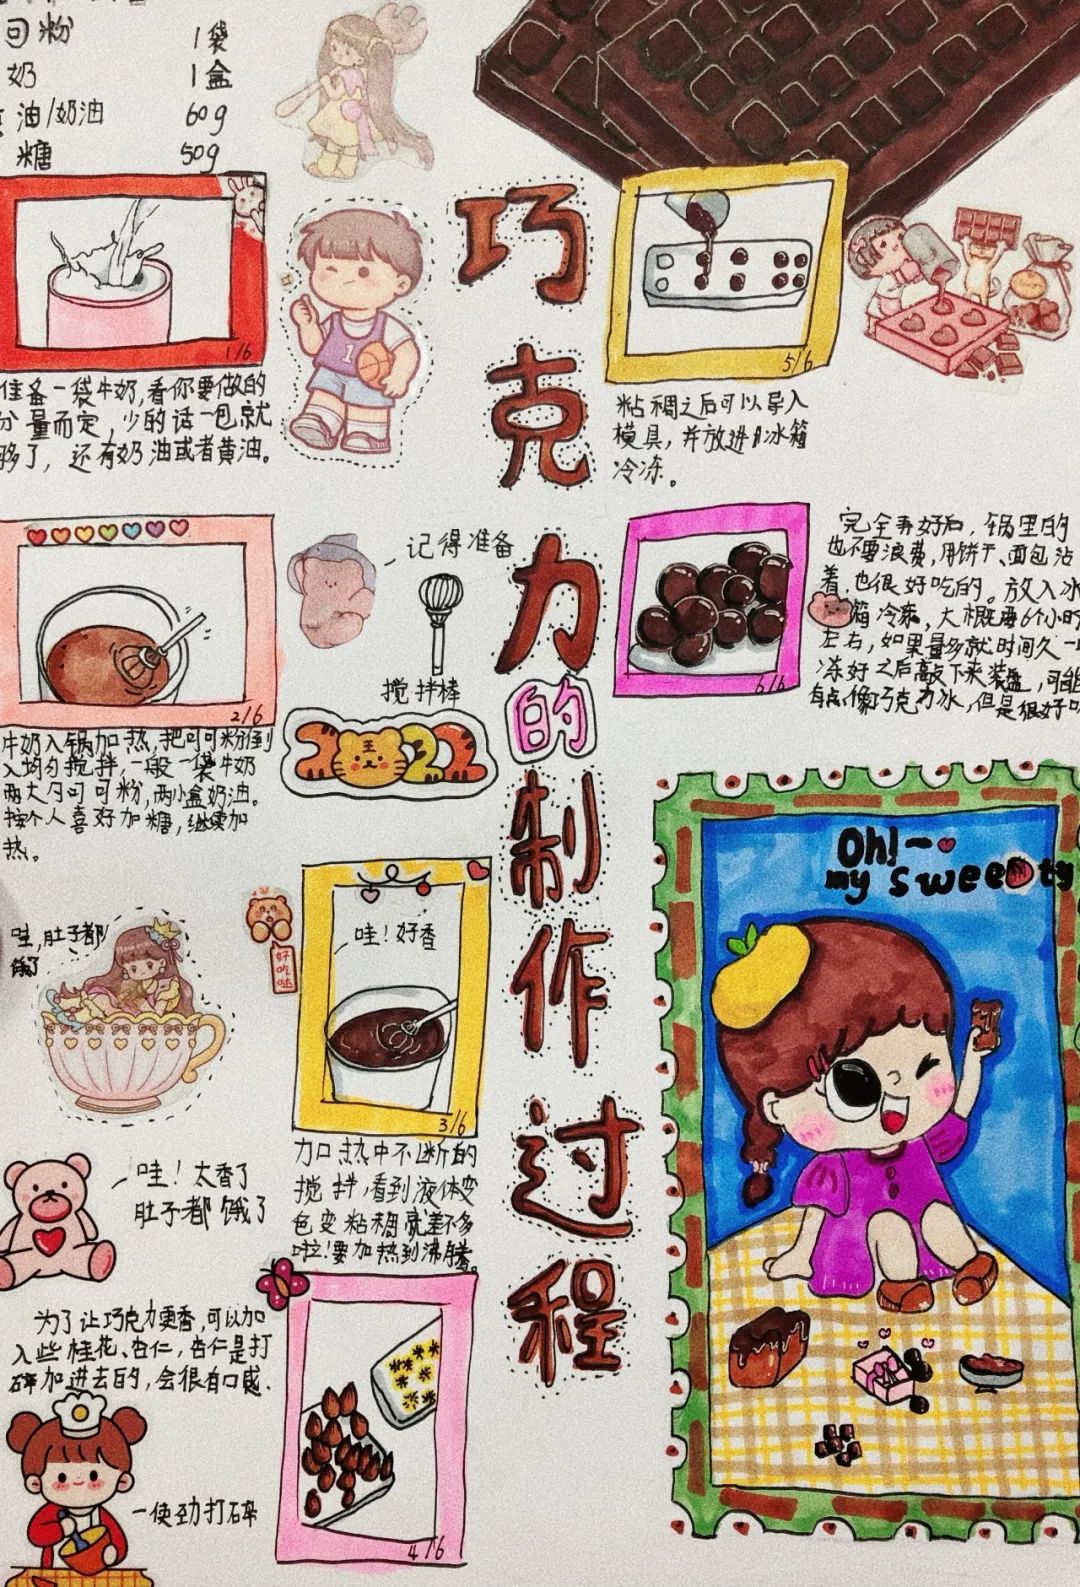 可粉 1袋
奶 1盒
油/奶油 60g
糖 50g
1/6
准备一袋牛奶,看你要做的
分量而定,少的话一包就
够了,还有奶油或者黄油。
2/6
牛奶入锅加热,把可可粉倒
入均匀搅拌,一般一袋牛奶
两大勺可可粉,两小盒奶油。
按个人喜好加糖,继续加
热。
记得准备
搅拌棒
2022
王
1
巧克力的制作过程
5/6
粘稠之后可以导入
模具,并放进冰箱
冷冻。
6/6
完全弄好后,锅里的
也不要浪费,用饼干、面包沾
着,也很好吃的。放入冰
箱冷冻,大概要6个小时
左右,如果量多就时间久一
冻好之后敲下来装盘,可能
有点像巧克力冰,但是很好吃
哇,肚子都
饿了
好吃哒
哇!好香
3/6
加热中不断的
搅拌,看到液体变
色变粘稠就差不多
啦!要加热到沸腾。
哇!太香了
肚子都饿了
为了让巧克力更香,可以加
入些桂花、杏仁,杏仁是打
碎加进去的,会很有口感.
一使劲打碎
4/6
Oh!
my sweety